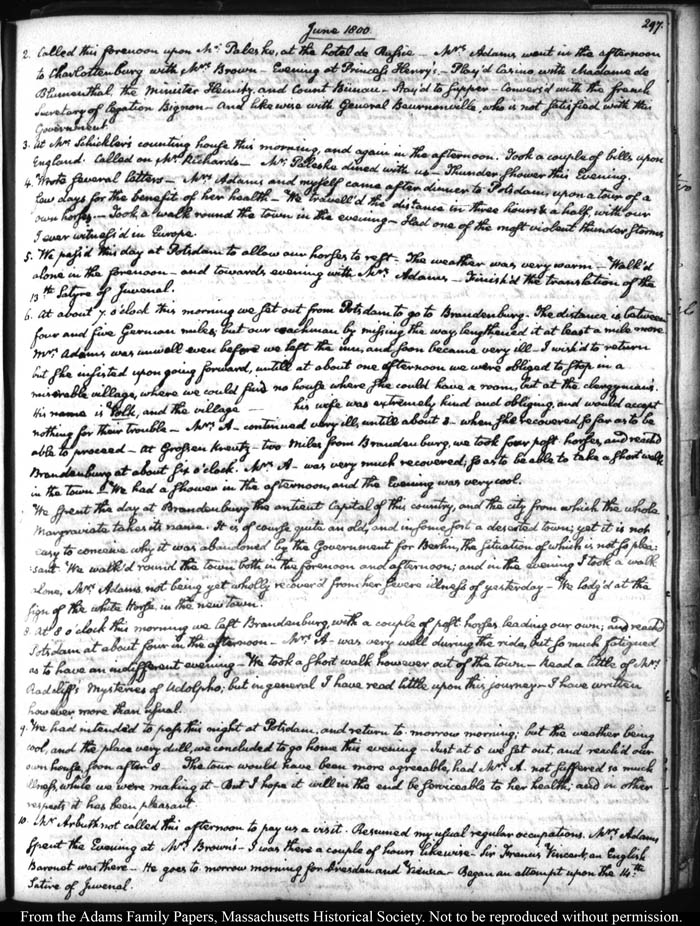 June 1800.
297.
2. Called this forenoon upon Mr. Paleske, at the hotel de Russie — Mrs. Adams went in the afternoon
to Charlottenburg with Mrs. Brown — Evening at Princess Henry's — Play'd Casino with Madame de
Blumenthal, the Minister and Count — Stay'd to supper — Convers'd with the french
Secretary of Legation Bignon — And likewise with General Beurnonville, who is not satisfied with this
Government.
3. At Mrs. Schickler's counting house this morning, and again in the afternoon. Took a couple of bills upon
England. Called on Mr. Richards — Mr. Paleske dined with us — Thunder shower this Evening.
4. Wrote several letters — Mrs Adams and myself came after dinner to Potsdam, upon a tour of a
few days for the benefit of her health — We travell'd the distance in three hours & a half, with our
own horses — Took a walk round the town in the evening — Had one of the most violent thunder storms
I ever witness'd in Europe.
5. We pass'd this day at Potsdam to allow our horses to rest — The weather was very warm — Walk'd
alone in the forenoon — and towards evening with Mrs. Adams — Finish'd the translation of the
13th. Satyre of Juvenal.
6. At about 7. o'clock this morning we set out from Potsdam to go to Brandenburg. The distance is between
four and five German miles; but our coachman by missing the way, lengthened it at least a mile more
Mrs. Adams was unwell even before we left the inn, and soon became very ill — I wish'd to return
but she insisted upon going forward, untill at about one afternoon we were obliged to stop in a
miserable village, where we could find no house where she could have a room, but at the clergyman's.
His name is Volk, and the village his wife was extremely kind and obliging, and would accept
nothing for their trouble — Mrs. A — continued very ill, untill about 3 — when she recovered so far as to be
able to proceed — At Grossen Kreutz — two Miles from Brandenburg, we took four post horses, and reach'd
Brandenburg at about six o'clock. Mrs. A — was very much recovered; so as to be able to take a short walk
in the town — We had a shower in the afternoon, and the Evening was very cool.
We spent the day at Brandenburg the antient Capital of this country, and the city from which the whole
Margraviate takes its name. It is of course quite an old, and in some sort a deserted town; yet it is not
easy to conceive why it was abandoned by the Government for Berlin, the situation of which is not so plea:
:sant. We walk'd round the town both in the forenoon and afternoon; and in the evening I took a walk
alone, Mrs. Adams not being yet wholly recover'd from her severe illness of yesterday — We lodg'd at the
sign of the white Horse, in the new town.
8. At 8 o'clock this morning we left Brandenburg, with a couple of post horses leading our own; and reach'd
Potsdam at about four in the afternoon — Mrs. A — was very well during the ride, but so much fatigued
as to have an indifferent evening — We took a short walk however out of the town — Read a little of Mrs.
Radcliff's Mysteries of Udolpho; but in general I have read little upon this journey — I have written
however more than usual.
9. We had intended to pass this night at Potsdam, and return to-morrow morning; but the weather being
cool, and the place very dull, we concluded to go home this evening — Just at 5 we set out, and reach'd our
own house, soon after 8 — The tour would have been more agreeable, had Mrs. A. not suffered so much
illness, while we were making it — But I hope it will in the end be serviceable to her health; and in other
respects it has been pleasant.
10. Mr. Arbuthnot called this afternoon to pay us a visit. Resumed my usual regular occupations. Mrs. Adams
spent the Evening at Mrs. Brown's — I was there a couple of hours likewise — Sir Francis Vincent, an English
Baronet was there — He goes to-morrow morning for Dresden and Vienna — Began an attempt upon the 14th.
Satire of Juvenal.
From the Adams Family Papers, Massachusetts Historical Society. Not to be reproduced without permission.